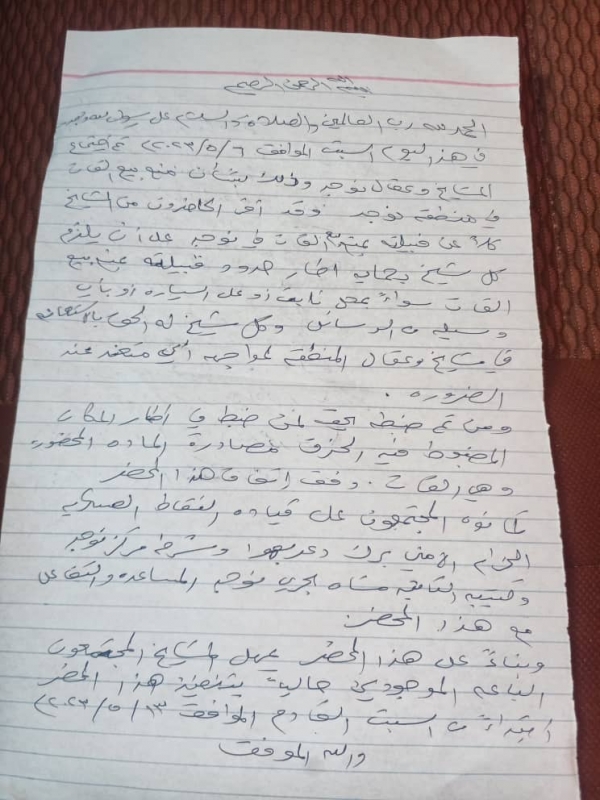 بسم الله الرحمن الرحيم
الحمد لله رب العالمين والصلاة والسلام على رسول الله وبعد
في هذا اليوم السبت الموافق ٢٠٢٣/٥/٦ تم اجتماع
المشايخ وعقال نوجد وذلك بشأن منع بيع القات
في منطقه نوجد وقد أقر الحاضرون من المشايخ
كلاً عن قبيلته بمنع القات في نوجد على أن يلتزم
كل شيخ بحماية اطار حدود قبيلته بمنع بيع
القات سواءً بمحل ثابت أو على السياره أو بأي
وسيله من الوسائل وكل شيخ له الحق بالاستعانه
في مشايخ وعقال المنطقه لمواجهه أي متعمد عند
الضروره .
ومن تم ضبطه يحق لمن ضبط في اطار المكان
المضبوط فيه الحق لمصادرة الماده المحضوره
وهي القات . وفق إتفاق هذا المحضر
كما نوه المجتمعون على قياده النقاط العسكريه
الحزام الأمني برك دعرهوا وشرطه مركز نوجد
وكتيبه الثانيه مشاه بحري نوجد المساعده والتفاعل
مع هذا المحضر.
وبناءً على هذا المحضر يمهل المشايخ المجتمعون
الباعه الموجودين حالياً بتنفيذ هذا المحضر
ابتداءً من السبت القادم الموافق ٢٠٢٣/٥/١٣
والله الموفق